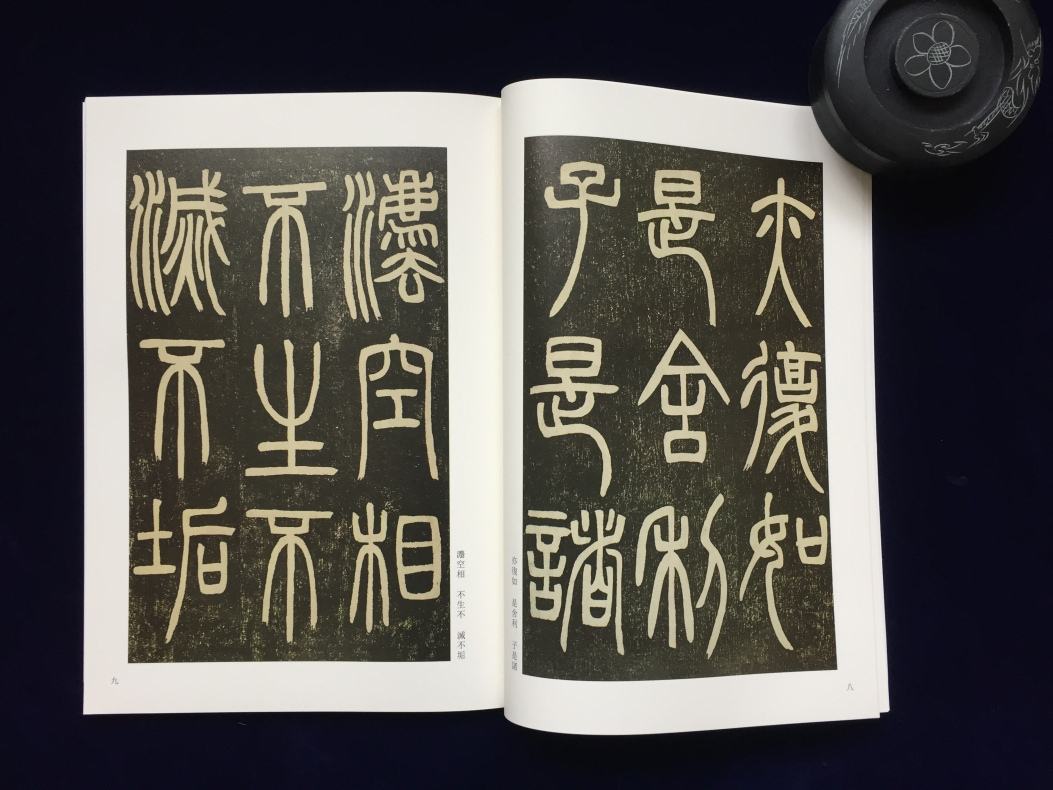 亦復如
是舍利
子是諸
亦復如 是舍利 子是諸
八
灋空相
不生不
滅不垢
灋空相 不生不 滅不垢
九